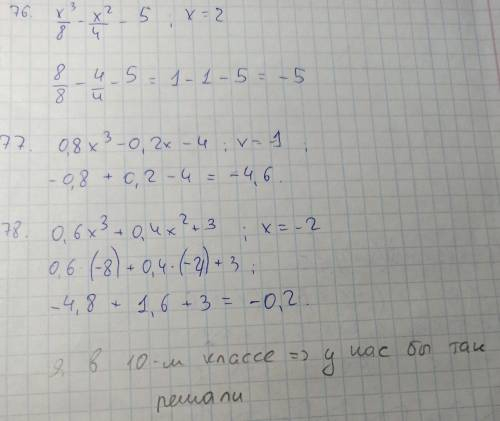 76. x³/8 - x²/4 - 5 ; x = 2
8/8 - 4/4 - 5 = 1 - 1 - 5 = -5
77. 0,8x³ - 0,2x - 4 ; x = -1 ;
-0,8 + 0,2 - 4 = -4,6.
78. 0,6x³ + 0,4x² + 3 ; x = -2
0,6 · (-8) + 0,4 · (-2) + 3 ;
-4,8 + 1,6 + 3 = -0,2.
Я в 10-м классе => у нас бы так
решали